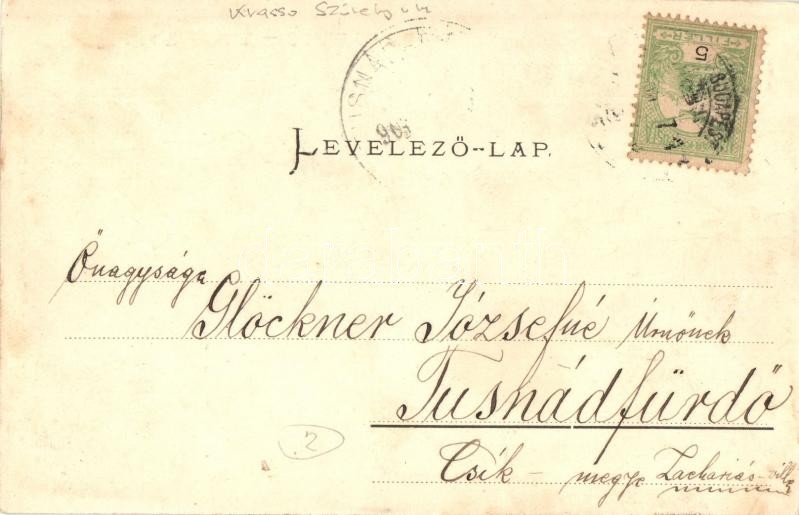 Krasso Székely
FILLÉR
5
BUDAPEST
TUSNÁD
903
LEVELEZŐ-LAP.
Őnagysága
Glöckner Józsefné Úrnőnek
Tusnádfürdő
Csík - megye Zachariás-villa
2